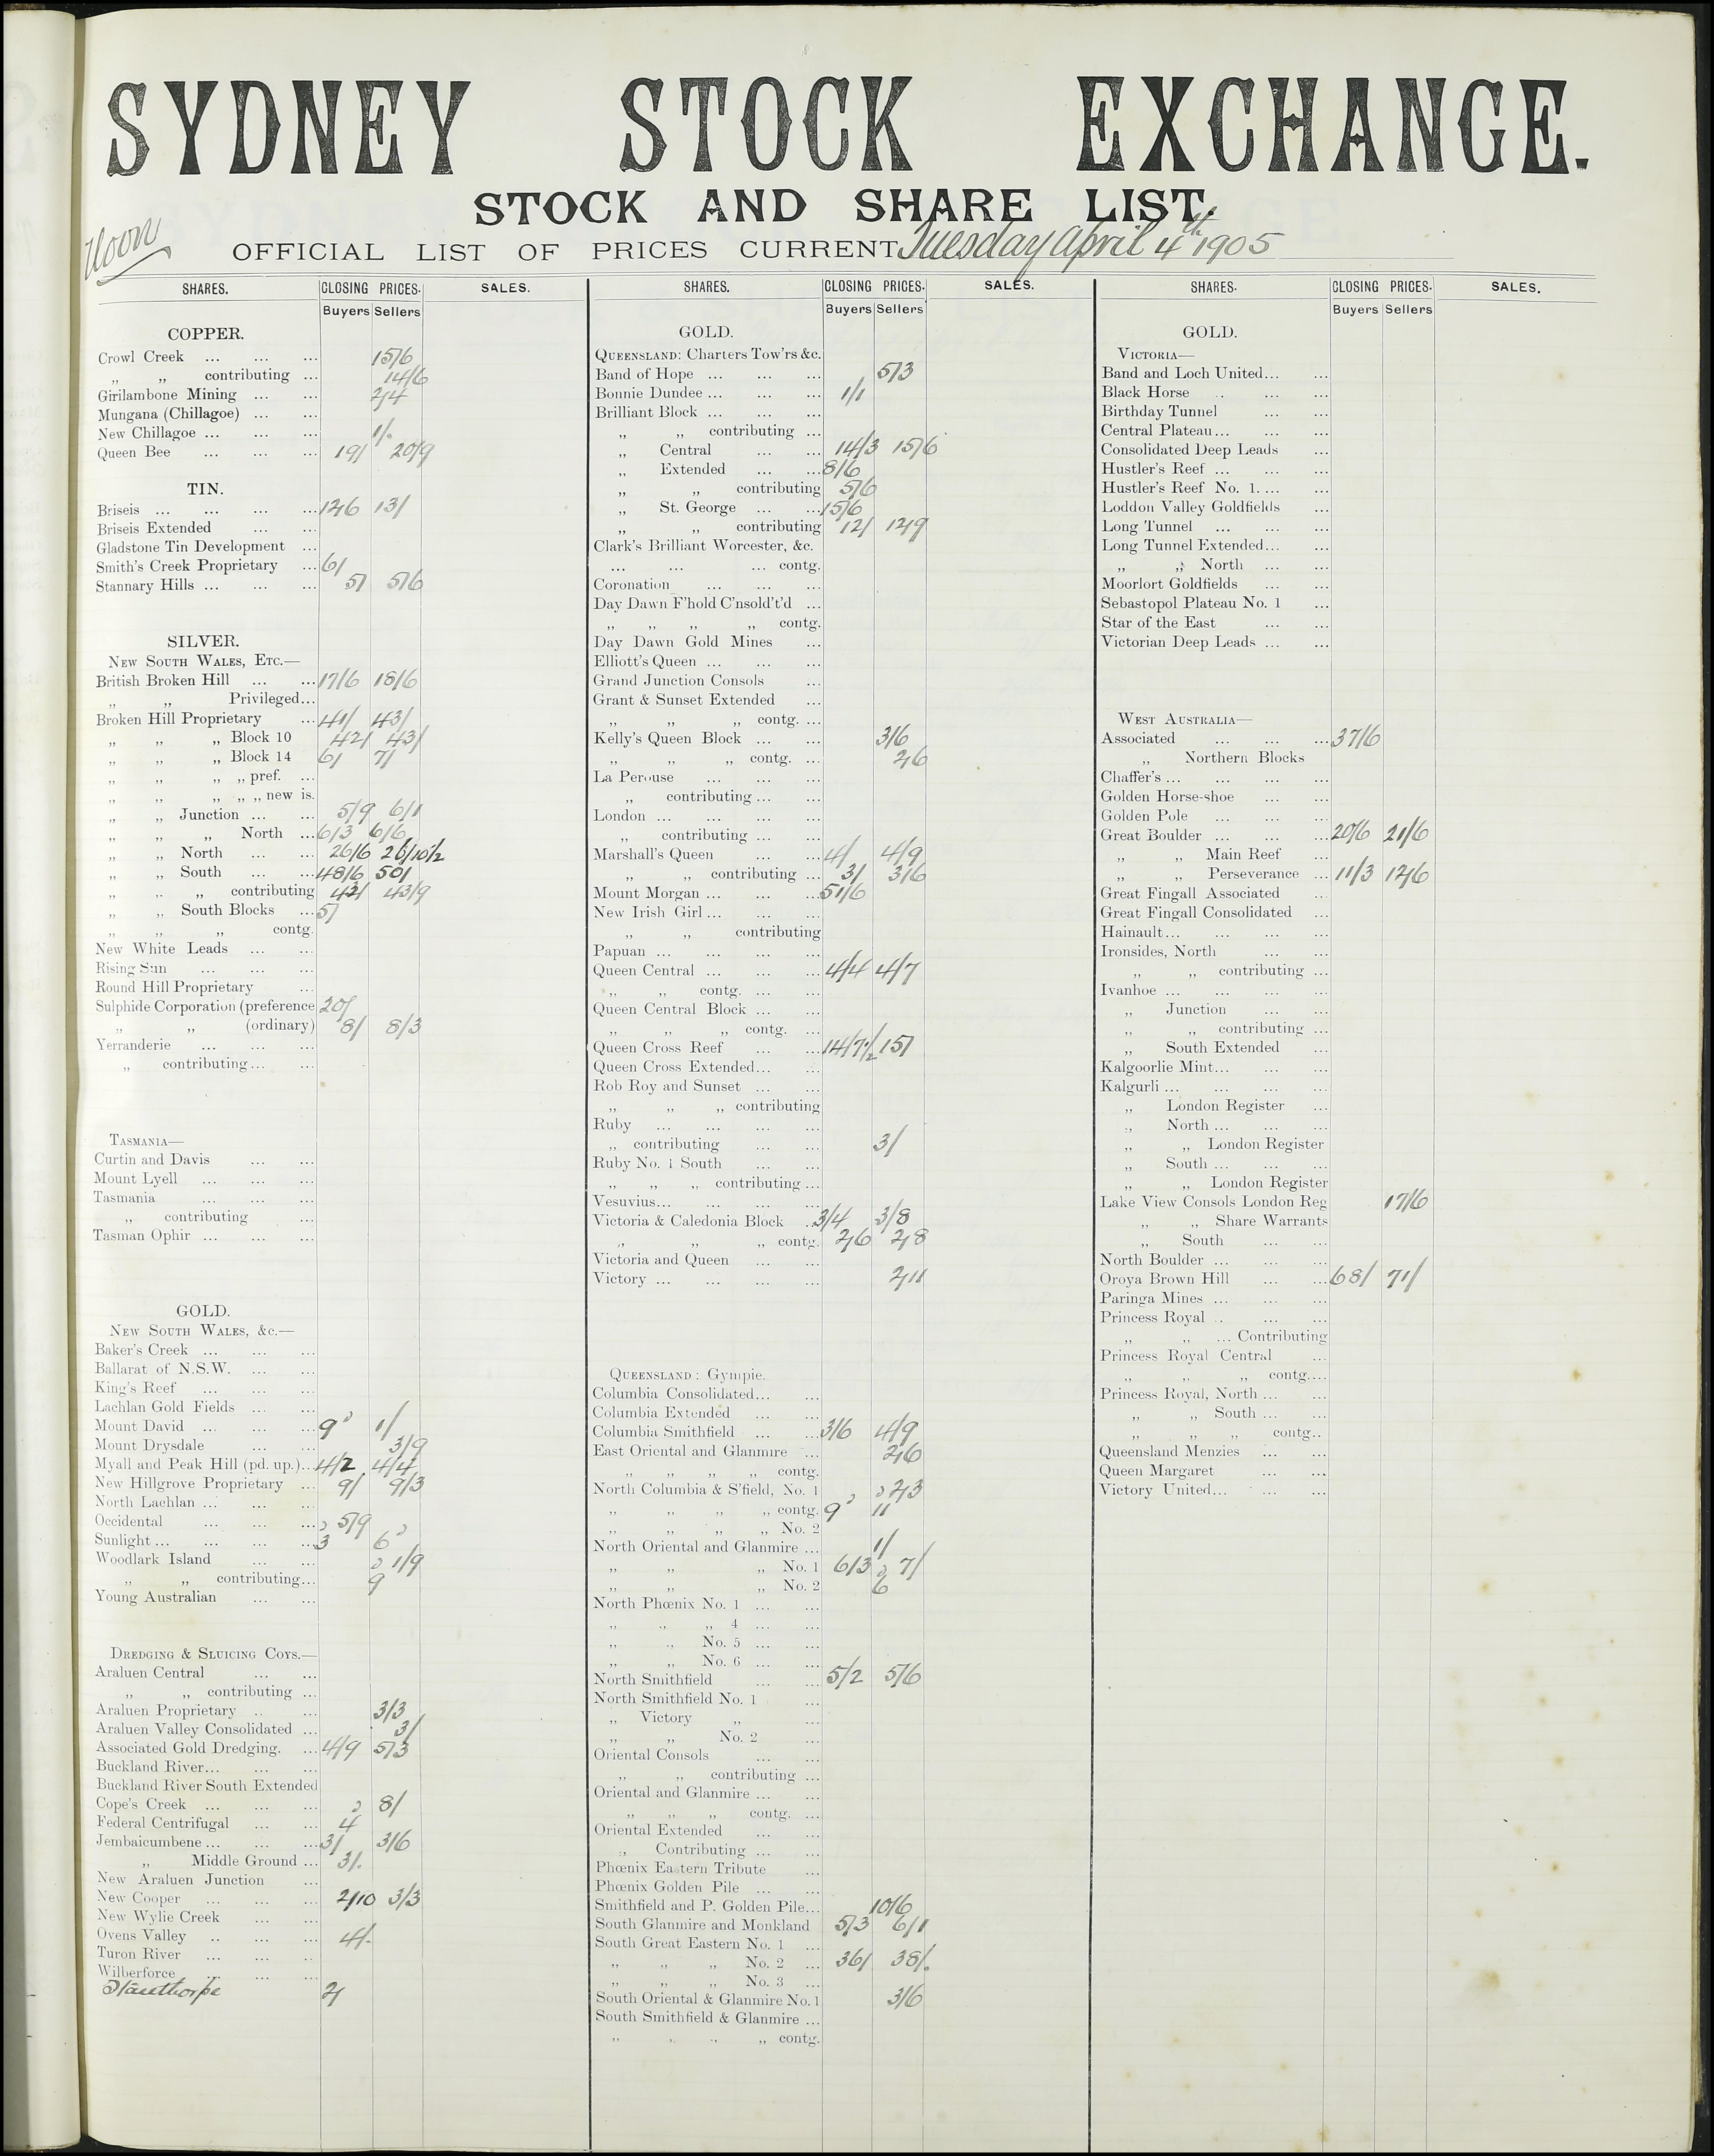 SYDNEY STOCK EXCHANGE.
STOCK AND SHARE LIST.
Noon
OFFICIAL LIST OF PRICES CURRENT Tuesday April 4th 1905
SHARES. CLOSING PRICES. SALES.
Buyers Sellers
COPPER.
Crowl Creek ... ... ... 15/6
„ „ contributing ... 14/6
Girilambone Mining ... ... 2/4
Mungana (Chillagoe) ... ...
New Chillagoe ... ... ... 1/.
Queen Bee ... ... ... 19/ 20/9
TIN.
Briseis ... ... ... ... 12/6 13/
Briseis Extended ... ...
Gladstone Tin Development ...
Smith's Creek Proprietary ... 6/
Stannary Hills ... ... ... 5/ 5/6
SILVER.
NEW SOUTH WALES, ETC.—
British Broken Hill ... ... 17/6 18/6
„ „ Privileged...
Broken Hill Proprietary ... 41/ 43/
„ „ „ Block 10 42/ 43/
„ „ „ Block 14 6/ 7/
„ „ „ „ pref. ...
„ „ „ „ „ new is.
„ „ Junction ... ... 5/9 6/1
„ „ „ North ... 6/3 6/6
„ „ North ... ... 26/6 26/10½
„ „ South ... ... 48/6 50/
„ „ „ contributing 42/ 43/9
„ „ South Blocks ... 5/
„ „ „ contg.
New White Leads ... ...
Rising Sun ... ... ...
Round Hill Proprietary ...
Sulphide Corporation (preference 20/
„ „ (ordinary) 8/ 8/3
Yerranderie ... ... ...
„ contributing ... ...
TASMANIA—
Curtin and Davis ... ...
Mount Lyell ... ... ...
Tasmania ... ... ...
„ contributing ...
Tasman Ophir ... ... ...
GOLD.
NEW SOUTH WALES, &c.—
Baker's Creek ... ... ...
Ballarat of N.S.W. ... ...
King's Reef ... ... ...
Lachlan Gold Fields ... ...
Mount David ... ... ... 9d 1/
Mount Drysdale ... ... 3/9
Myall and Peak Hill (pd. up.)... 4/2 4/4
New Hillgrove Proprietary ... 9/ 9/3
North Lachlan ... ... ...
Occidental ... ... ... 5/9
Sunlight ... ... ... ... 3d 6d
Woodlark Island ... ... 1/9
„ „ contributing... 9d
Young Australian ... ...
DREDGING & SLUICING COYS.—
Araluen Central ... ...
„ „ contributing ...
Araluen Proprietary .. ... 3/3
Araluen Valley Consolidated ... 3/
Associated Gold Dredging. ... 4/9 5/3
Buckland River... ... ...
Buckland River South Extended
Cope's Creek ... ... ... 8/
Federal Centrifugal ... ... 4d
Jembaicumbene ... ... ... 3/ 3/6
„ Middle Ground ... 3/.
New Araluen Junction ...
New Cooper ... ... ... 2/10 3/3
New Wylie Creek ... ...
Ovens Valley .. ... ... 4/.
Turon River ... ... ..
Wilberforce ... ... ...
Stanthorpe 2/
SHARES. CLOSING PRICES. SALES.
Buyers Sellers
GOLD.
QUEENSLAND: Charters Tow'rs &c.
Band of Hope ... ... ... 5/3
Bonnie Dundee ... ... ... 1/1
Brilliant Block ... ... ...
„ „ contributing ...
„ Central ... ... 14/3 15/6
„ Extended ... ... 8/6
„ „ contributing 5/6
„ St. George ... ... 15/6
„ „ contributing 12/ 12/9
Clark's Brilliant Worcester, &c.
... ... ... contg.
Coronation ... ... ...
Day Dawn F'hold C'nsold't'd ...
„ „ „ „ contg.
Day Dawn Gold Mines ...
Elliott's Queen ... ... ...
Grand Junction Consols ...
Grant & Sunset Extended ...
„ „ „ contg. ...
Kelly's Queen Block ... ... 3/6
„ „ „ contg. ... 2/6
La Perouse ... ... ...
„ contributing ... ...
London ... ... ... ...
„ contributing ... ...
Marshall's Queen ... ... 4/ 4/9
„ „ contributing ... 3/ 3/6
Mount Morgan ... ... ... 51/6
New Irish Girl ... ... ...
„ „ contributing
Papuan ... ... ... ...
Queen Central ... ... ... 4/4 4/7
„ „ contg. ... ...
Queen Central Block ... ...
„ „ „ contg. ...
Queen Cross Reef ... ... 14/7½ 15/
Queen Cross Extended... ...
Rob Roy and Sunset ... ...
„ „ „ contributing
Ruby ... ... ... ...
„ contributing ... ... 3/
Ruby No. 1 South ... ...
„ „ „ contributing ...
Vesuvius... ... ... ...
Victoria & Caledonia Block .. 3/4 3/8
„ „ „ contg. 2/6 2/8
Victoria and Queen ... ...
Victory ... ... ... ... 2/11
QUEENSLAND: Gympie.
Columbia Consolidated... ...
Columbia Extended ... ...
Columbia Smithfield ... ... 3/6 4/9
East Oriental and Glanmire ... 2/6
„ „ „ „ contg.
North Columbia & S'field, No. 1 2/3
„ „ „ „ contg. 9d 11d
„ „ „ „ No. 2
North Oriental and Glanmire ... 1/
„ „ „ No. 1 6/3 7/
„ „ „ No. 2 6d
North Phœnix No. 1 ... ...
„ „ „ 4 ... ...
„ „ No. 5 ... ...
„ „ No. 6 ... ...
North Smithfield ... ... 5/2 5/6
North Smithfield No. 1 ...
„ Victory „ ...
„ „ No. 2 ...
Oriental Consols ... ...
„ „ contributing ...
Oriental and Glanmire ... ...
„ „ „ contg. ...
Oriental Extended ... ...
„ Contributing ... ...
Phœnix Eastern Tribute ...
Phœnix Golden Pile ... ...
Smithfield and P. Golden Pile... 10/6
South Glanmire and Monkland 5/3 6/1
South Great Eastern No. 1 ...
„ „ „ No. 2 ... 36/ 38/.
„ „ „ No. 3 ...
South Oriental & Glanmire No. 1 3/6
South Smithfield & Glanmire ...
„ „ „ „ contg.
SHARES. CLOSING PRICES. SALES.
Buyers Sellers
GOLD.
VICTORIA—
Band and Loch United... ...
Black Horse .. ... ...
Birthday Tunnel ... ...
Central Plateau ... ... ...
Consolidated Deep Leads ...
Hustler's Reef ... ... ...
Hustler's Reef No. 1. ... ...
Loddon Valley Goldfields ...
Long Tunnel ... ... ...
Long Tunnel Extended... ...
„ „ North ... ...
Moorlort Goldfields ... ...
Sebastopol Plateau No. 1 ...
Star of the East ... ...
Victorian Deep Leads ... ...
WEST AUSTRALIA—
Associated ... ... ... 37/6
„ Northern Blocks
Chaffer's ... ... ... ...
Golden Horse-shoe ... ...
Golden Pole ... ... ...
Great Boulder ... ... ... 20/6 21/6
„ „ Main Reef ...
„ „ Perseverance ... 11/3 12/6
Great Fingall Associated ...
Great Fingall Consolidated ...
Hainault... ... ... ...
Ironsides, North ... ...
„ „ contributing ...
Ivanhoe ... ... ... ...
„ Junction ... ...
„ „ contributing ...
„ South Extended ...
Kalgoorlie Mint... ... ...
Kalgurli ... ... ... ...
„ London Register ...
„ North ... ... ...
„ „ London Register
„ South ... ... ...
„ „ London Register
Lake View Consols London Reg 17/6
„ „ Share Warrants
„ South ... ...
North Boulder ... ... ...
Oroya Brown Hill ... ... 68/ 71/
Paringa Mines ... ... ...
Princess Royal .. ... ...
„ „ ... Contributing
Princess Royal Central ...
„ „ „ contg....
Princess Royal, North ... ...
„ „ South ... ...
„ „ „ contg..
Queensland Menzies ... ...
Queen Margaret ... ...
Victory United... ... ...